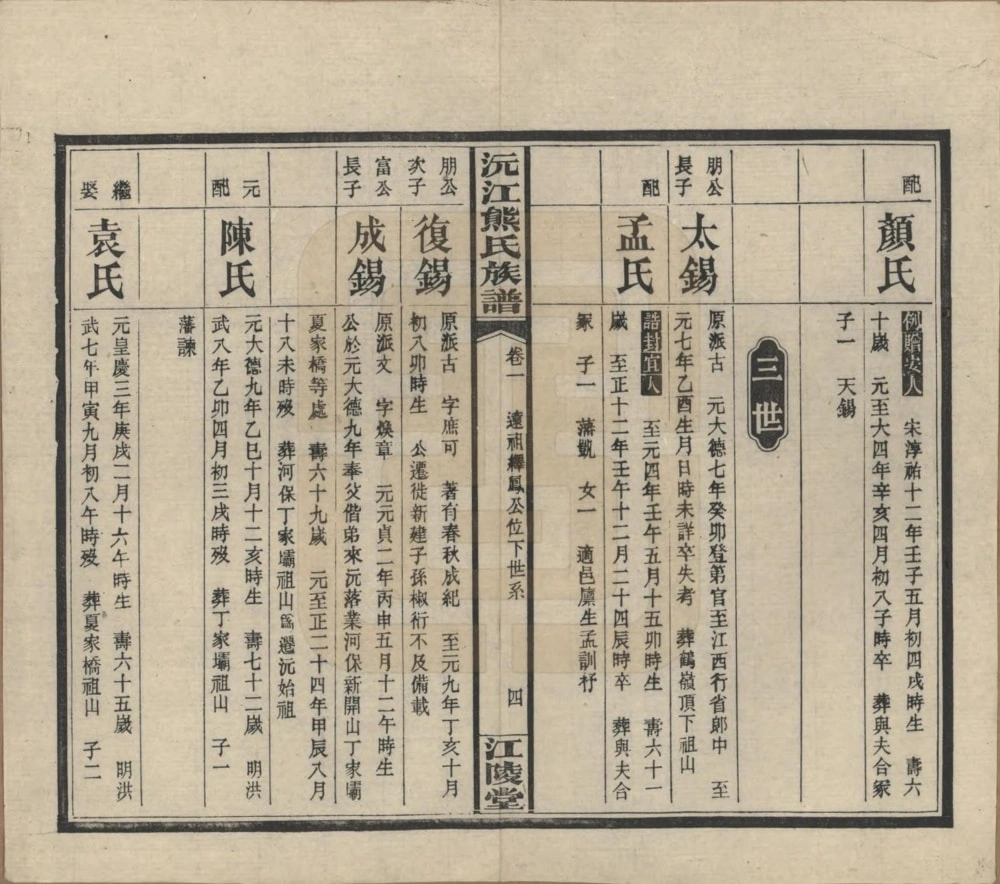 配
顏氏
例贈安人 宋淳祐十二年壬子五月初四戌時生 壽六
十歲 元至大四年辛亥四月初入子時卒 葬與夫合冢
子一 天錫
三世
朋公
長子
太錫
原派古 元大德七年癸卯登第官至江西行省郎中 至
元七年乙酉生月日時未詳卒失考 葬鶴嶺頂下祖山
配
孟氏
誥封宜人 至元四年壬午五月十五卯時生 壽六十一
歲 至正十二年壬午十二月二十四辰時卒 葬與夫合
冢 子一 藩凱 女一 適邑廩生孟訓杼
沅江熊氏族譜
卷一 遠祖繹鳳公位下世系 四
江陵堂
朋公
次子
復錫
原派古 字庶可 著有春秋成紀 至元九年丁亥十月
初八卯時生 公遷徙新建子孫椒衍不及備載
富公
長子
成錫
原派文 字煥章 元元貞二年丙申五月十二午時生
公於元大德九年奉父偕弟來沅落業河保新開山丁家壩
夏家橋等處 壽六十九歲 元至正二十四年甲辰八月
十八未時歿 葬河保丁家壩祖山爲遷沅始祖
元
配
陳氏
元大德九年乙巳十月十二亥時生 壽七十二歲 明洪
武八年乙卯四月初三戌時歿 葬丁家壩祖山 子一
藩諫
繼
娶
袁氏
元皇慶三年庚戌二月十六午時生 壽六十五歲 明洪
武七年甲寅九月初入午時歿 葬夏家橋祖山 子二